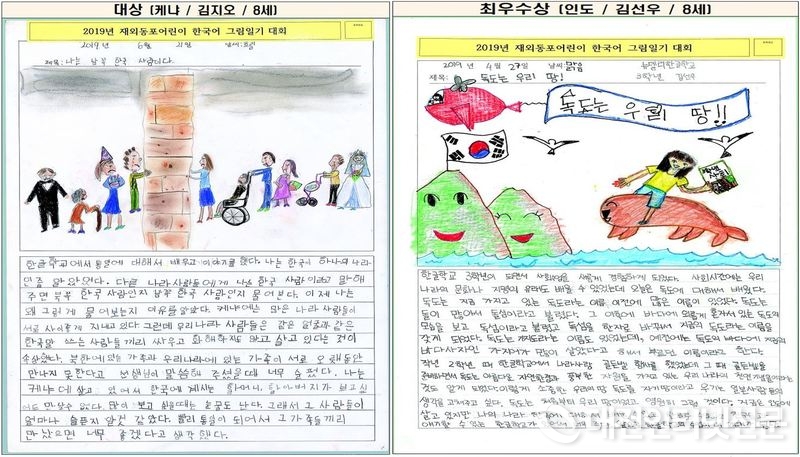 대상 (케냐 / 김지오 / 8세)
2019년 재외동포어린이 한국어 그림일기 대회
2019년 6월 21일 날씨:흐림
제목: 나는 남북 한국 사람이다.
한글학교에서 통일에 대해서 배우고 이야기를 했다. 나는 한국이 하나의 나라
인줄 알았었다. 다른 나라사람들에게 나는 한국 사람이라고 말해
주면 북쪽 한국 사람인지 남쪽 한국 사람인지 물어보았다. 이제 나는
왜 그렇게 물어보는지 이유를 알았다. 케냐에는 많은 나라 사람들이
서로 사이좋게 지내고 있다 그런데 우리나라 사람들은 같은 얼굴과 같은
한국말 쓰는 사람들 끼리 싸우고 화해하지도 않고 살고 있다는 것이
속상했다. 북한에 있는 가족과 우리나라에 있는 가족이 서로 오랫동안
만나지 못한다고 선생님이 말씀해 주셨을때 너무 슬펐다. 나는
케냐에 살고 있어서 한국에 계시는 할머니, 할아버지가 보고싶
어도 만날수 없다. 많이 보고 싶을때는 눈물도 난다. 그래서 그 사람들이
얼마나 슬픈지 알것 같았다. 빨리 통일이 되어서 그 가족들끼리
만났으면 너무 좋겠다고 생각했다.
최우수상 (인도 / 김선우 / 8세)
2019년 재외동포어린이 한국어 그림일기 대회
2019년 4월 27일 날씨:맑음
뉴델리한글학교
제목: 독도는 우리 땅!
3학년 김선우
독도는 우리 땅!!
한글학교 3학년이 되면서 사회수업을 새롭게 경험하게 되었다. 사회시간에는 우리
나라의 문화나 지명의 유래도 배울 수 있었는데 오늘은 독도에 대해서 배웠다.
독도는 지금 가지고 있는 독도라는 이름 이전에 많은 이름이 있었다. 독도는
돌이 많아서 돌섬이라고 불렸고 그 이후에 바다에 외롭게 혼자서 있는 독도의
모습을 보고 독섬이라고 불렸고 독섬을 한자로 바꾸어서 지금의 독도라는 이름을
갖게 되었다. 독도는 가지도라는 이름도 있었는데, 예전에는 독도의 바다에서 지금의
바다사자인 가지어가 많이 살았다고 해서 부르던 이름이라고 한다.
작년 2학년 때 한글학교에서 나라사랑 골든벨 행사를 했었는데 그 때 골든벨을
준비하면서 독도의 아름다운 자연환경과 풍부한 자원을 가지고 있는 우리 나라의 천연기념물이라는
것도 알게 되었다.
대전인터넷신문